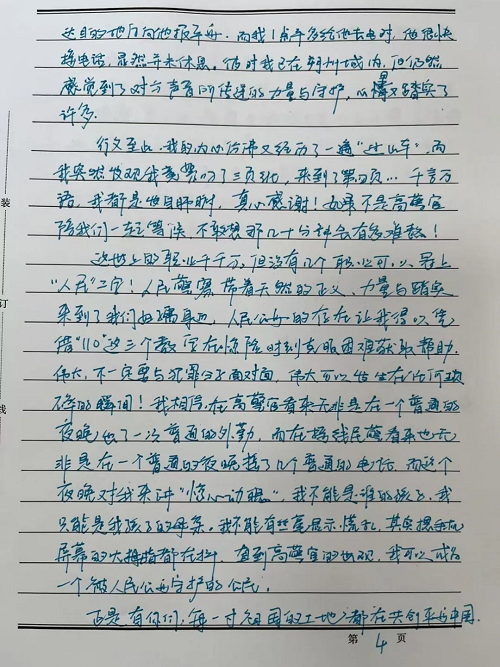 达目的地后向他报平安。而我1点半多给他去电时，他很快
接电话，显然并未休息。彼时我已在朔州城内，但仍然
感觉到了对方声音所传递的力量与守护，心踏实了
许多。
行文至此，我的内心仿佛又经历了一遍“过山车”，而
我突然发现我竟写了三页纸，来到了第四页… 千言万
语，我都是泪目，真心感谢！如果不是高警官
陪我们一起等待，不敢想那几十分钟会有多难熬！
这世上的职业千千万，但没有几个职业可以冠上
“人民”二字！人民警察带着天然的正义、力量与踏实
来到了我们妇孺身边，人民公安的存在让我得以凭
借“110”这三个数字在惊险时刻克服困难获取帮助。
伟大，不一定要与犯罪分子面对面，伟大可以发生在任何琐
碎的瞬间！我相信，在高警官看来无非是在一个普通的
夜晚出了一次普通的外勤，而在接线民警看来也无
非是在一个普通的夜晚接了几个普通的电话，而这个
夜晚对我来讲“惊心动魄”，我不能是谁的孩子，我
只能是我孩子的母亲，我不能有丝毫展示慌乱，其实摁手机
屏幕的大拇指都在抖，直到高警官的出现，我可以成为
一个被人民公安守护的公民。
正是有你们，每一寸祖国的土地，都在共创平安中国。
第 4 页
装
订
线